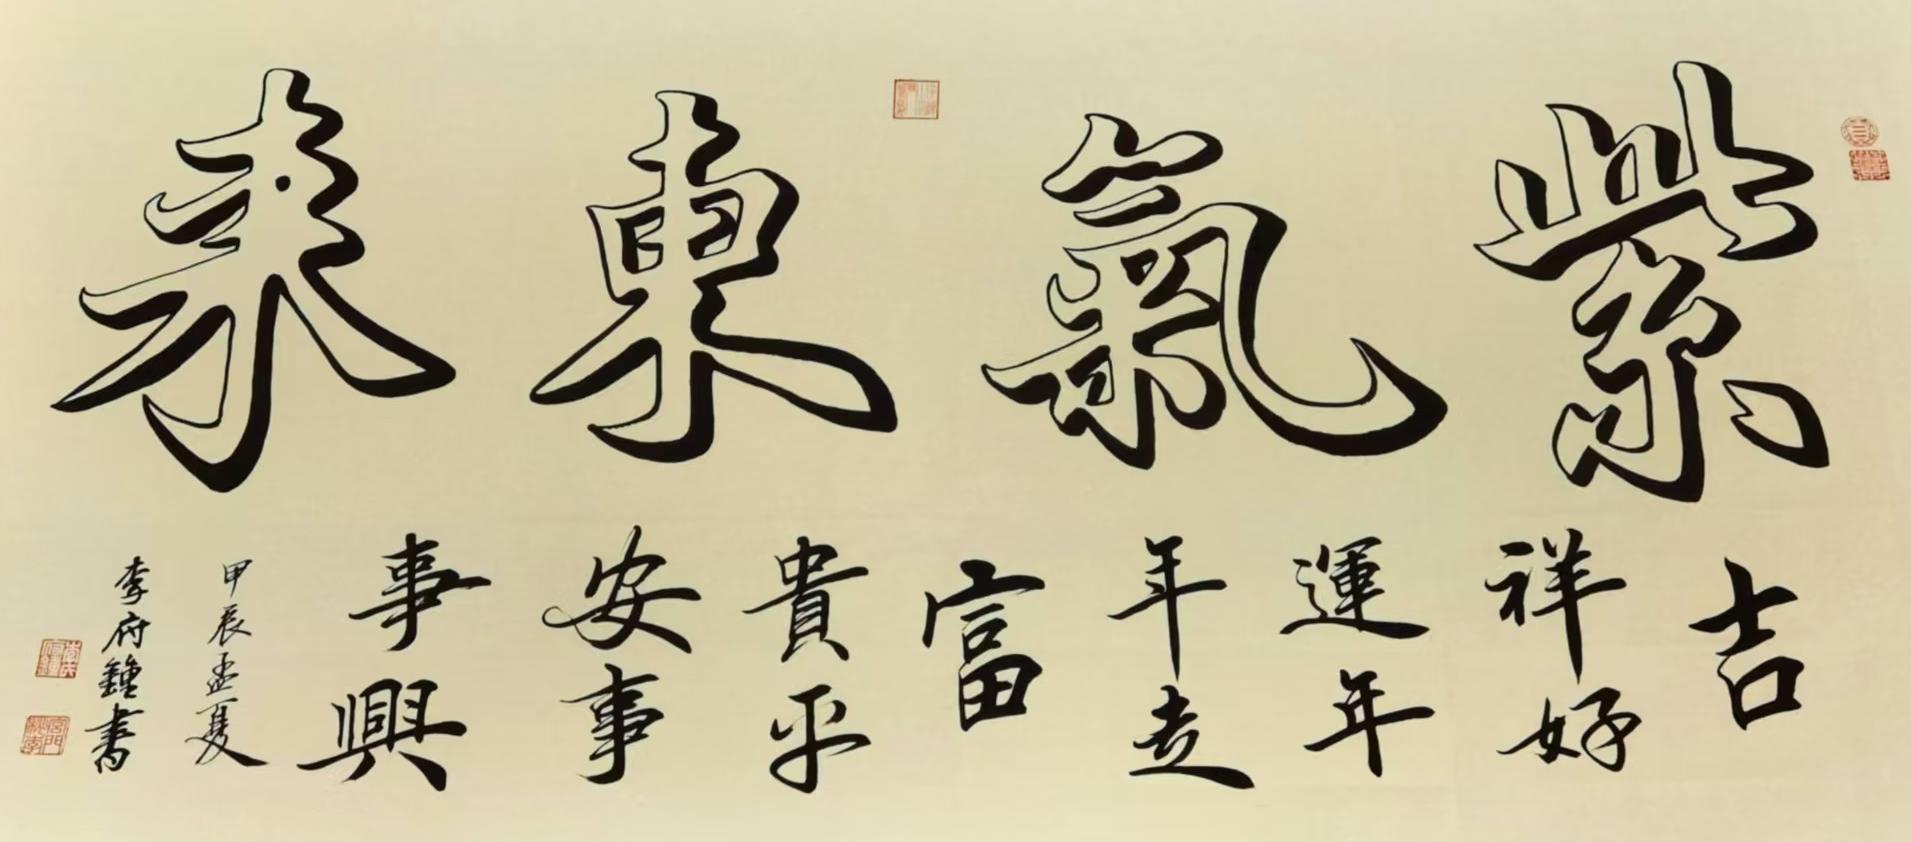 紫氣東來
吉
祥好
運年
年走
富
貴平
安事
事興
甲辰孟夏
李府鍾書